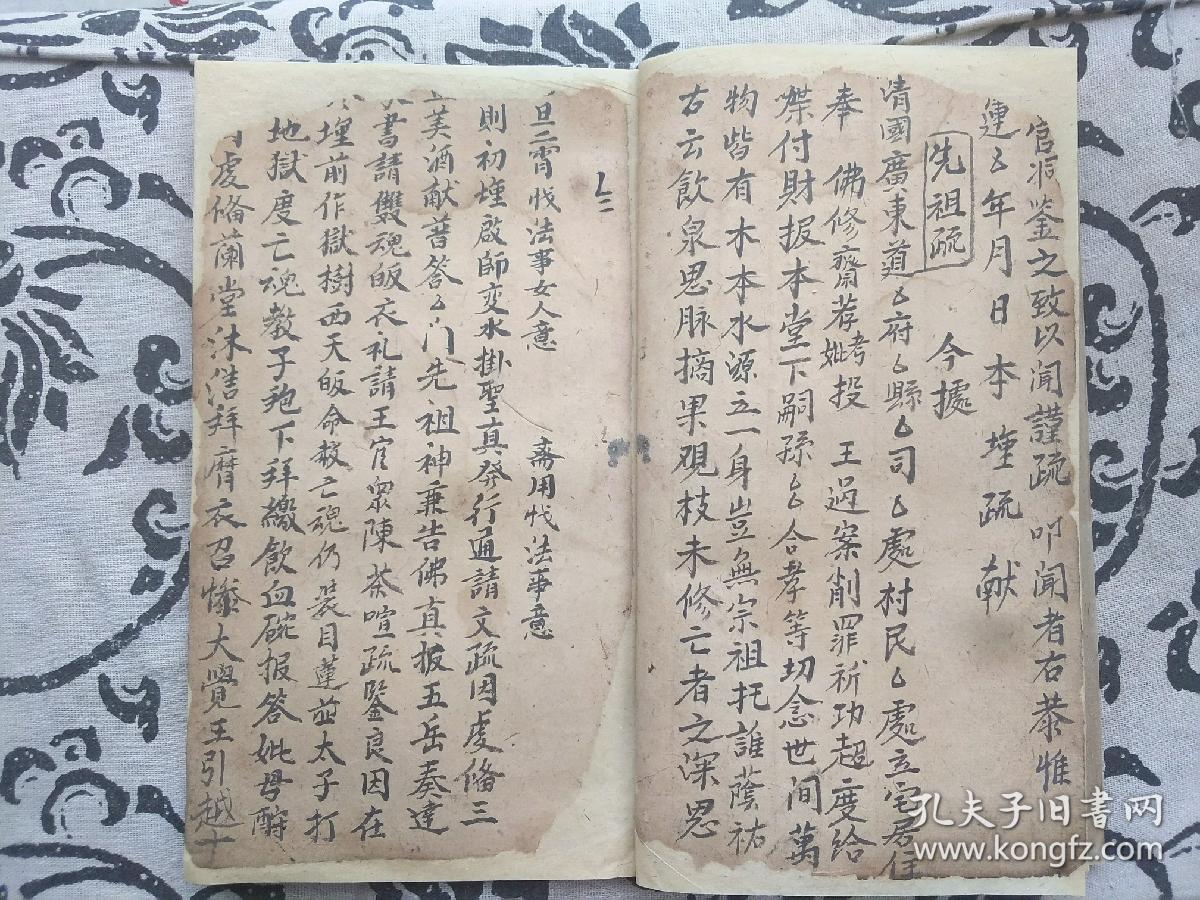 官洞鉴之致以闻謹疏 叩闻者右恭惟
運厶年月日本壇疏 献
先祖疏 今據
清國廣東道厶府厶縣厶司厶處村民厶處立宅居住
奉 佛修齋荐考妣投 王過案削罪祈功超度給
牒付財扳本堂下嗣孫厶厶合孝等切念世間萬
物皆有木本水源五一身豈無宗祖托誰蔭祐
古云飲泉思脉摘果覌枝未修亡者之深恩
旦二霄伐法事女人意 斋用伐法事意
則初壇啟師变水掛聖真發行通請文疏因虔俻三
美酒献普答厶门先祖神秉告佛真扳五岳奏達
書請雙魂皈衣礼請王官衆陳茶喧疏鑒良因在
壇前作獄樹西天皈命救亡魂仍装目蓮並太子打
地獄度亡魂教子孢下拜繳飲血碗报答妣母酧
虔俻蘭堂沐浩拜磨衣召懺大覺王引越十
孔夫子旧书网
www.kongfz.com